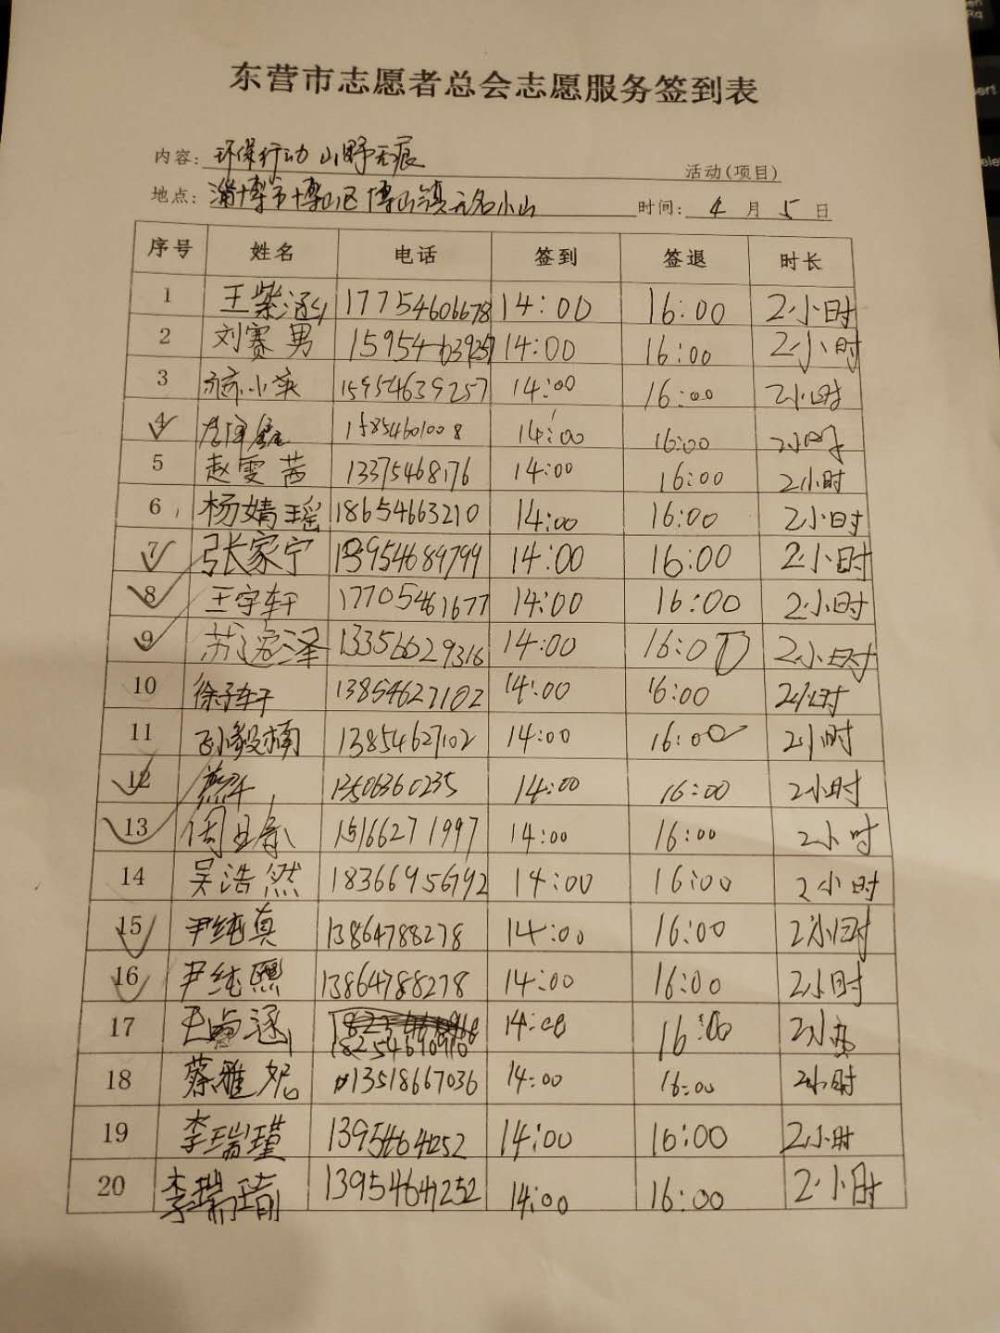 东营市志愿者总会志愿服务签到表
内容: 环保行动 山野无痕 活动(项目)
地点: 淄博市博山区博山镇无名小山 时间: 4月5日
序号 姓名 电话 签到 签退 时长
1 王紫涵 17754606678 14:00 16:00 2小时
2 刘赛男 14:00 16:00 2小时
3 15954639257 14:00 16:00 2小时
4 14:00 16:00 2小时
5 赵雯茜 13375468176 14:00 16:00 2小时
6 杨婧瑶 18654663210 14:00 16:00 2小时
7 张家宁 13954684799 14:00 16:00 2小时
8 王宇轩 17705461677 14:00 16:00 2小时
9 泽 13356629316 14:00 16:00 2小时
10 徐子轩 13854627102 14:00 16:00 2小时
11 孙毅楠 13854627102 14:00 16:00 2小时
12 13506360235 14:00 16:00 2小时
13 15166271997 14:00 16:00 2小时
14 吴浩然 14:00 16:00 2小时
15 尹纯真 13864788278 14:00 16:00 2小时
16 尹纯熙 13864788278 14:00 16:00 2小时
17 14:00 16:00 2小时
18 蔡雅妮 13518667036 14:00 16:00 2小时
19 李瑞瑾 14:00 16:00 2小时
20 李瑞瑜 13954641252 14:00 16:00 2小时